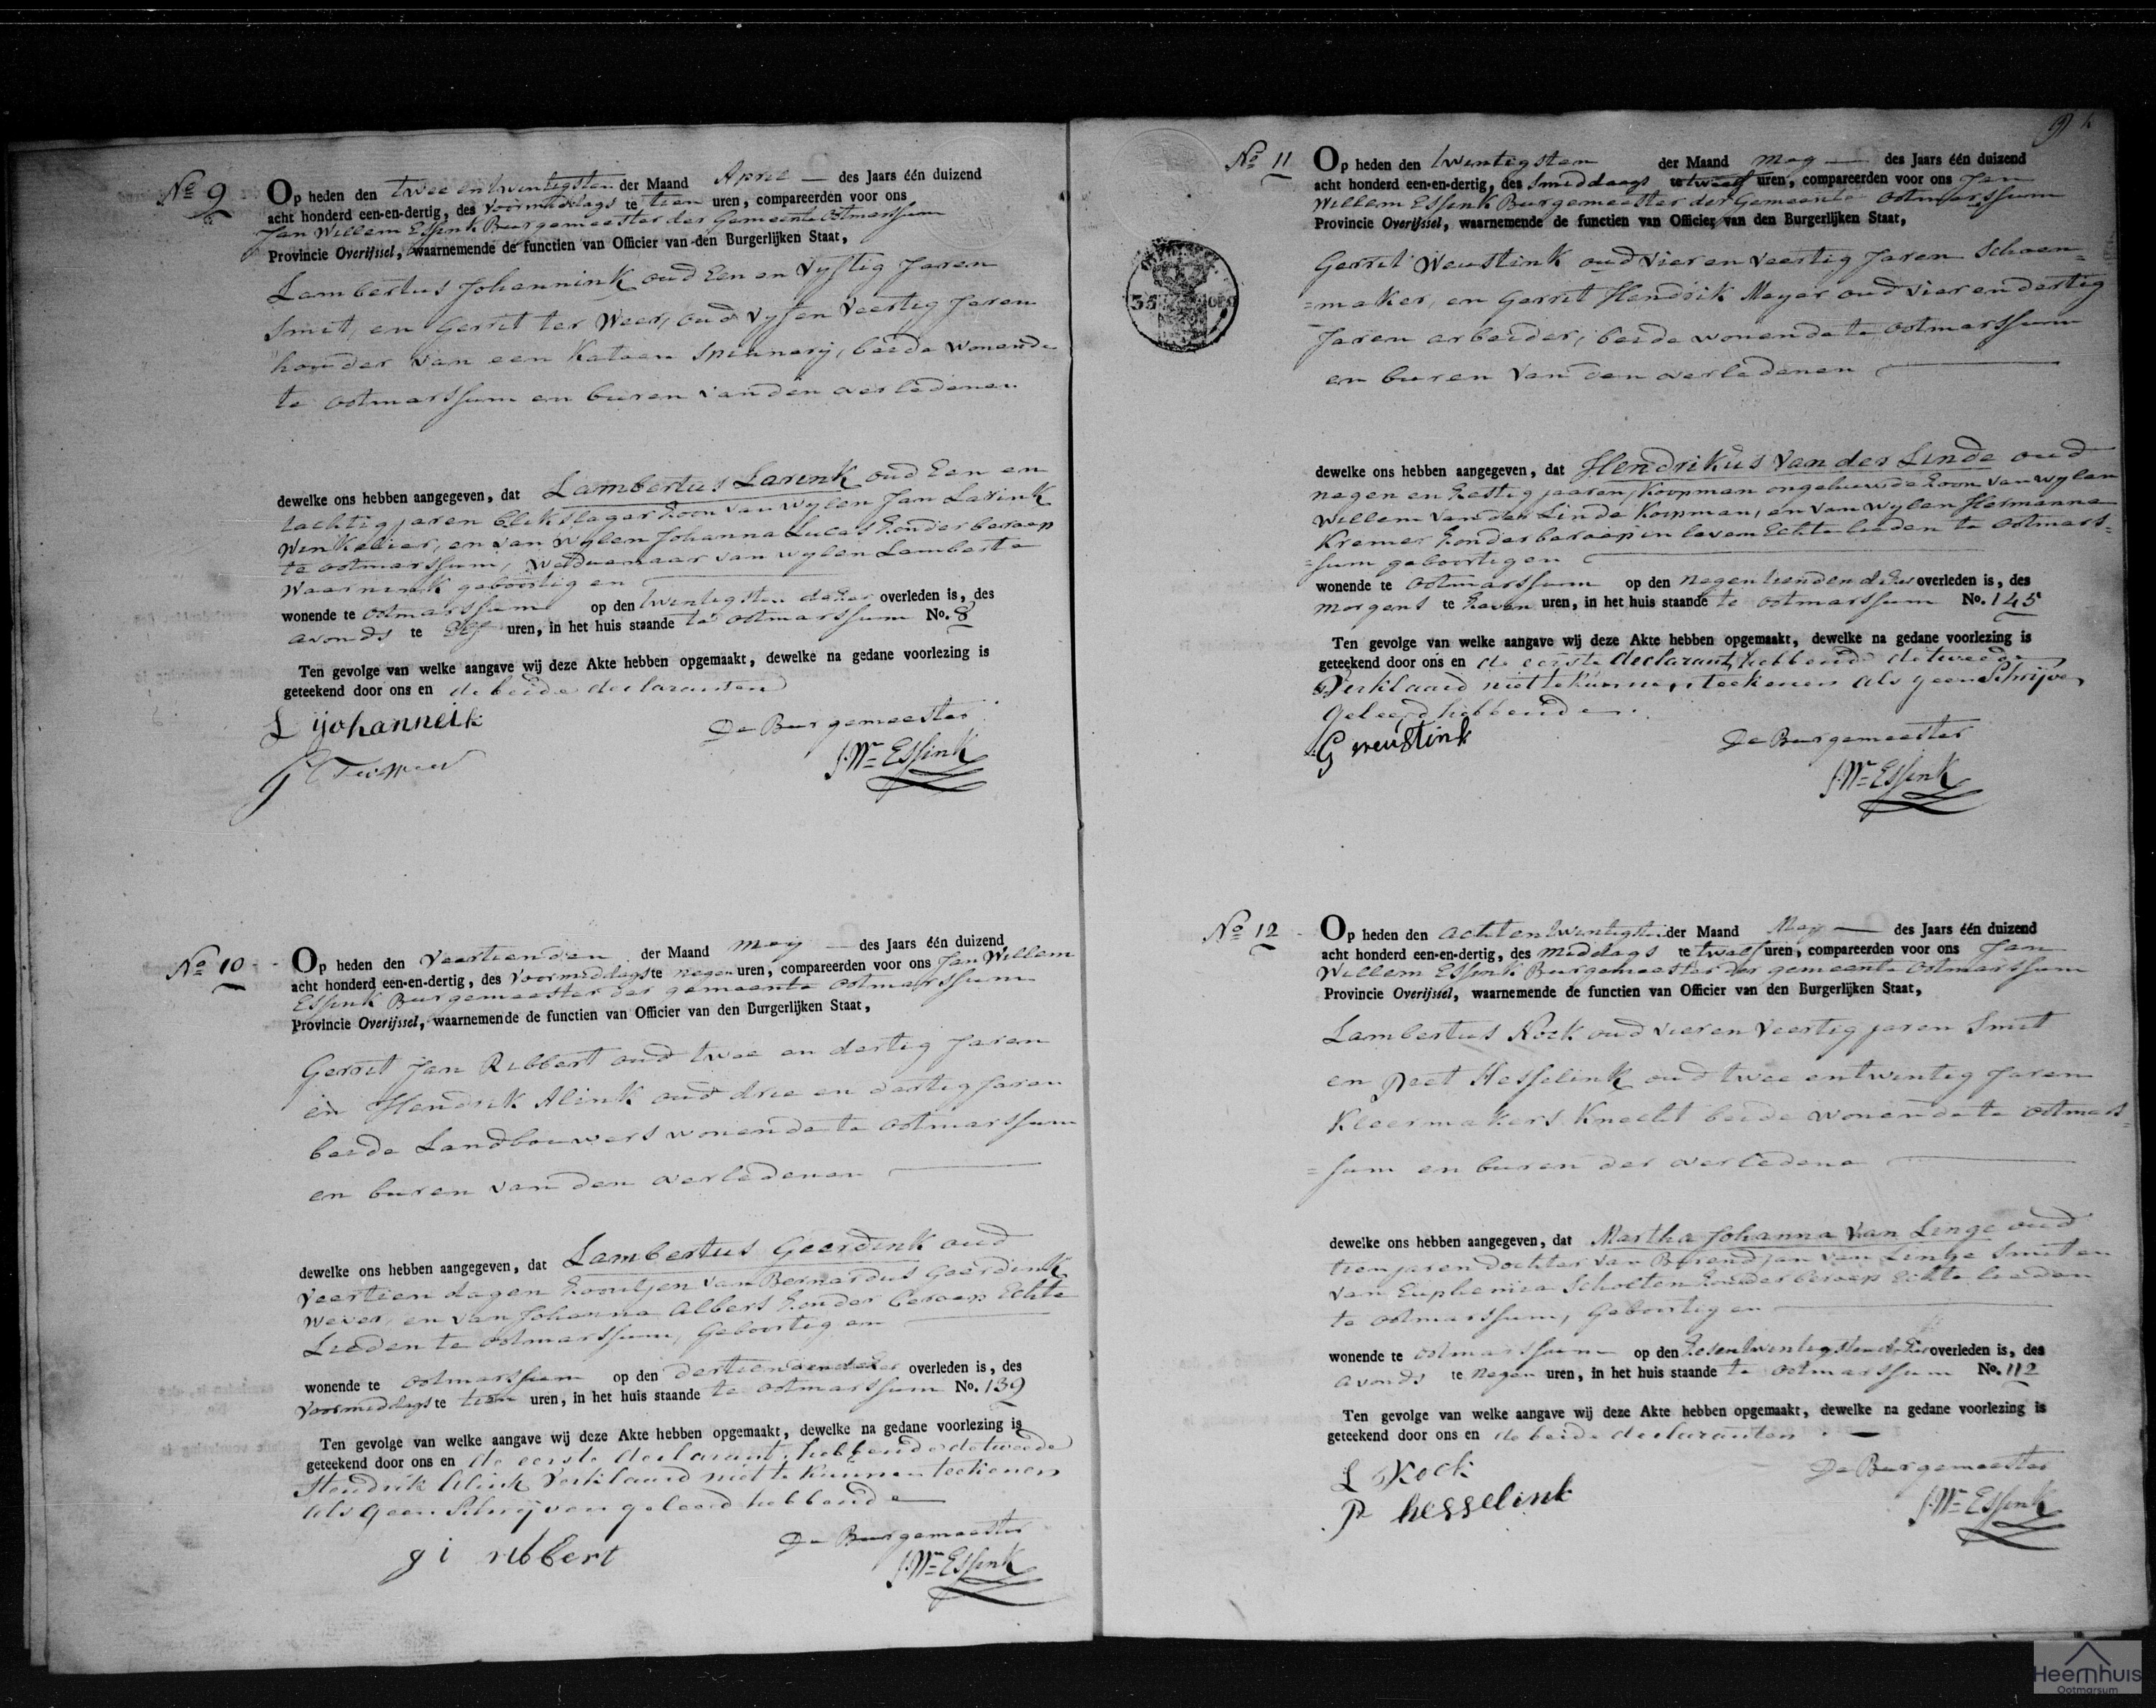 No 9
Op heden den twee en twentigsten der Maand April — des Jaars één duizend
acht honderd een-en-dertig, des voormiddags te tien uren, compareerden voor ons
Jan Willem Essink Burgemeester der Gemeente Ootmarssum
Provincie Overijssel, waarnemende de functien van Officier van den Burgerlijken Staat,
Lambertus Johannink oud Een en Vyftig Jaren
Smit, en Gerrit ter Weer, oud vyf en veertig Jaren
houder van een Katoen Spinnery, beide wonende
te Ootmarssum en buren van den overledenen
dewelke ons hebben aangegeven, dat Lambertus Larink oud Een en
tachtig jaren blikslager Zoon van wylen Jan Larink
Winkelier, en van wylen Johanna Lucas Zonder beroep
te Ootmarssum, Weduwnaar van wylen Lamberta
Waarnink geboortig en
wonende te Ootmarssum op den twintigsten dezer overleden is, des
avonds te Elf uren, in het huis staande te Ootmarssum No. 8
Ten gevolge van welke aangave wij deze Akte hebben opgemaakt, dewelke na gedane voorlezing is
geteekend door ons en de beide declaranten
L ijohanneik
De Burgemeester
J.Wm Essink
No 10
Op heden den veertienden der Maand mey — des Jaars één duizend
acht honderd een-en-dertig, des voormiddags te negen uren, compareerden voor ons Jan Willem
Essink Burgemeester der gemeente Ootmarssum
Provincie Overijssel, waarnemende de functien van Officier van den Burgerlijken Staat,
Gerrit Jan Ribbert oud twee en dertig Jaren
en Hendrik Alink oud drie en dertig Jaren
beide Landbouwers wonende te Ootmarssum
en buren van den overledenen
dewelke ons hebben aangegeven, dat Lambertus Geerdink oud
veertien dagen Zoontjen van Bernardus Geerdink
wever, en van Johanna Albers Zonder beroep Echte
Lieden te Ootmarssum, Geboortig en
wonende te Ootmarssum op den dertienden dezer overleden is, des
voormiddags te tien uren, in het huis staande te Ootmarssum No. 139
Ten gevolge van welke aangave wij deze Akte hebben opgemaakt, dewelke na gedane voorlezing is
geteekend door ons en de eerste declarant, hebbende de tweede
Hendrik Alink verklaard niet te kunnen teekenen
als geen Schryven geleerd hebbende
g i ribbert
De Burgemeester
J.Wm Essink
No 11
Op heden den twentigsten der Maand mey — des Jaars één duizend
acht honderd een-en-dertig, des smiddags te twaalf uren, compareerden voor ons Jan
Willem Essink Burgemeester der Gemeente Ootmarssum
Provincie Overijssel, waarnemende de functien van Officier van den Burgerlijken Staat,
Gerrit Weustink oud vier en veertig Jaren Schoen=
=maker, en Gerrit Hendrik Meyer oud vier en dertig
Jaren arbeider, beide wonende te Ootmarssum
en buren van den overledenen
35
dewelke ons hebben aangegeven, dat Hendrikus van der Linde oud
negen en Zestig jaaren, Koopman ongehuwde Zoon van wylen
Willem van der Linde Koopman, en van wylen Hermanna
Kremer Zonder beroep in leven Echte lieden te Ootmars=
=sum geboortig en
wonende te Ootmarssum op den negentienden dezer overleden is, des
morgens te Zeven uren, in het huis staande te Ootmarssum No. 145
Ten gevolge van welke aangave wij deze Akte hebben opgemaakt, dewelke na gedane voorlezing is
geteekend door ons en de eerste declarant, hebbende de tweede
Verklaard niet te kunnen teekenen als geen Schrijven
geleerd hebbende.
G weustink
De Burgemeester
J.Wm Essink
No 12
Op heden den achtentwintigsten der Maand Mey — des Jaars één duizend
acht honderd een-en-dertig, des middags te twalf uren, compareerden voor ons Jan
Willem Essink Burgemeester der gemeente Ootmarssum
Provincie Overijssel, waarnemende de functien van Officier van den Burgerlijken Staat,
Lambertus Kock oud vier en veertig jaren Smit
en Peet Hesselink oud twee en twintig Jaren
Kleermakers Knecht beide wonende te Ootmars
=sum en buren der overledene
dewelke ons hebben aangegeven, dat Martha Johanna van Linge oud
tien jaren dochter van Berend jan van Linge Smit en
van Euphemia Scholten zonder beroep Echte lieden
te Ootmarssum, Geboortig en
wonende te Ootmarssum op den Zesentwintigsten dezer overleden is, des
avonds te Negen uren, in het huis staande te Ootmarssum No. 112
Ten gevolge van welke aangave wij deze Akte hebben opgemaakt, dewelke na gedane voorlezing is
geteekend door ons en de beide declaranten.
L Kock
P hesselink
De Burgemeester
J.Wm Essink
Heemhuis
Ootmarsum